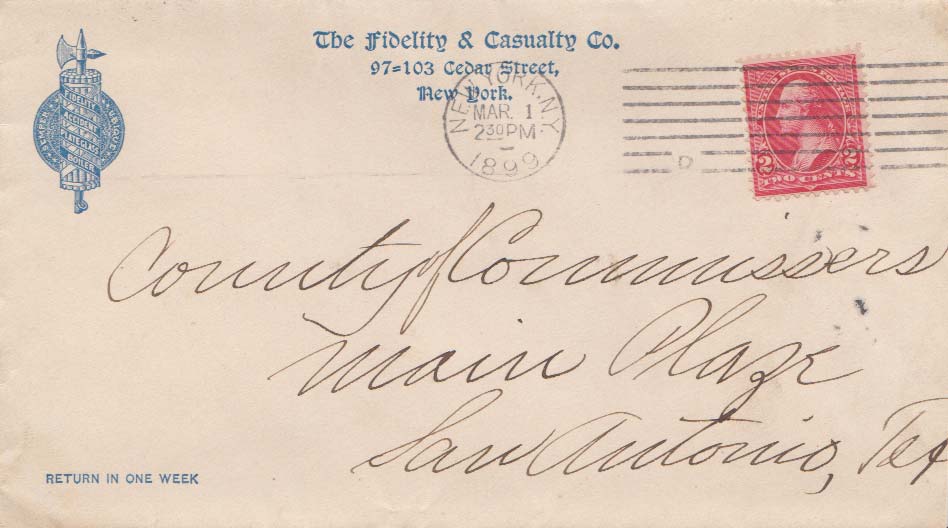 The Fidelity & Casualty Co.
97=103 Cedar Street,
New York.
NEW YORK, N.Y.
MAR. 1
2 30 PM
1899
D
2 2
TWO CENTS
FIDELITY
ACCIDENT
PLATE GLASS
BOILER
County of Commissers
Main Plaze
San Antonio, Tex
RETURN IN ONE WEEK